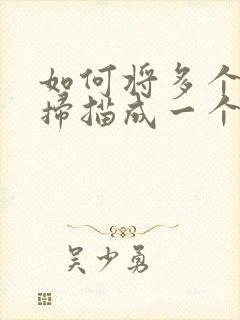 如何将多个
扫描成一个
吴少勇